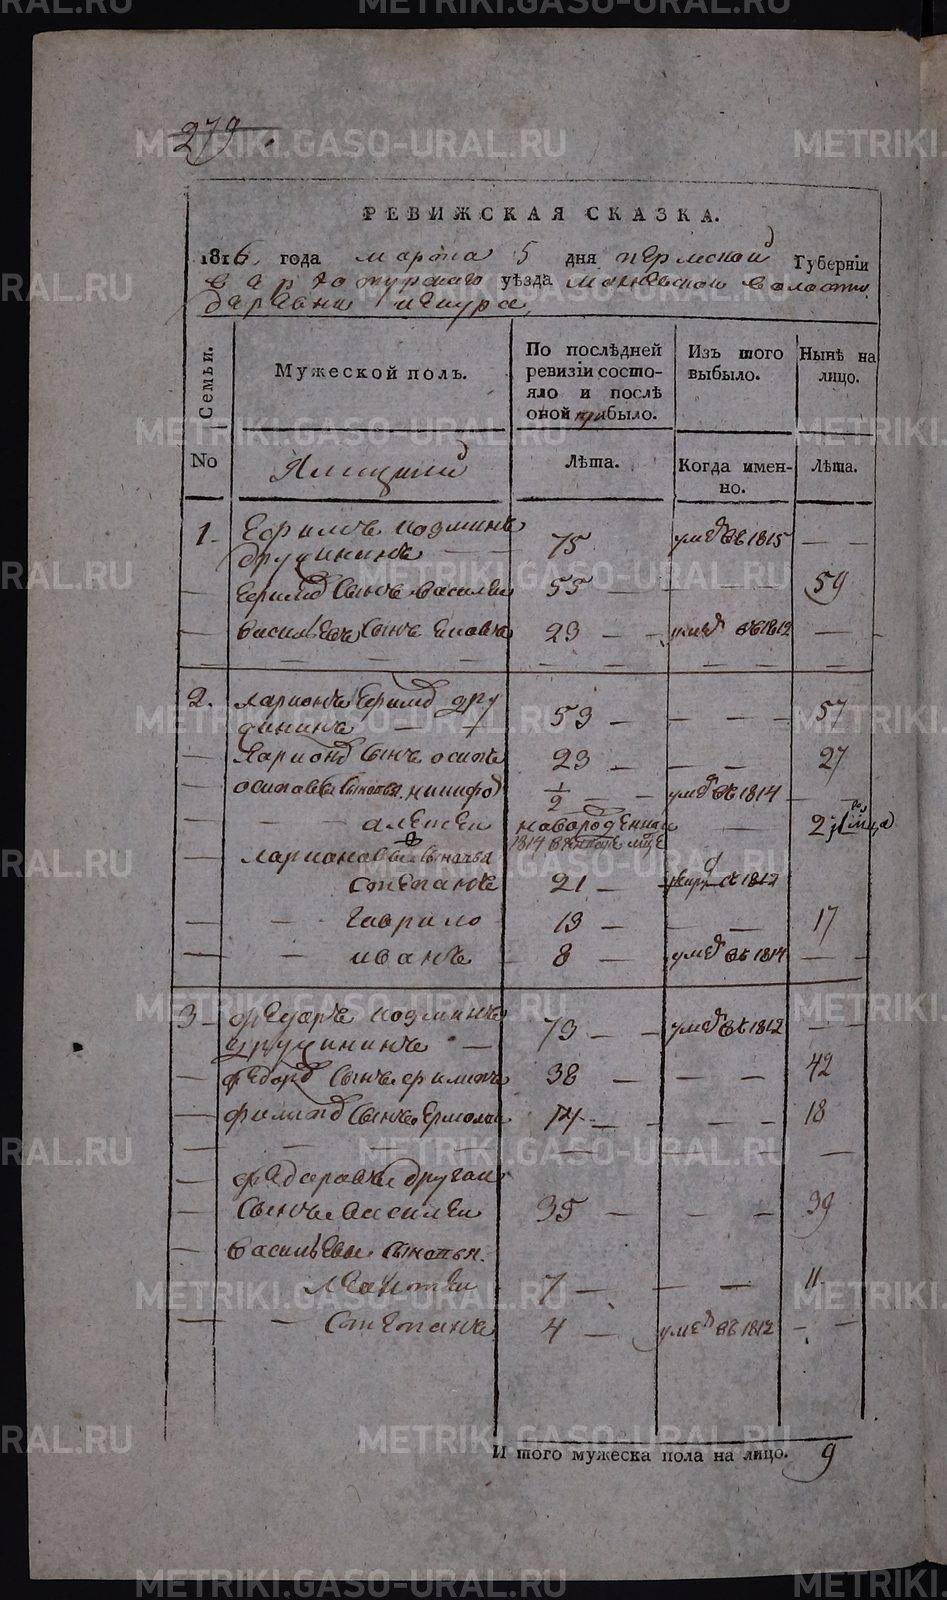 279
РЕВИЖСКАЯ СКАЗКА.
1816 года марта 5 дня пермской Губернїи
верхотурскаго уѣзда волости
деревни
Семьи.
Мужеской полъ.
По послѣдней ревизїи состояло и послѣ оной прибыло.
Изъ того выбыло.
Нынѣ на лицо.
No
Ямщики
Лѣта.
Когда именно.
Лѣта.
1. Ефимъ Козминъ
Дружининъ — — 75 умеръ въ 1815 — —
— Ефимов Сынъ Василеи 55 — — — — 59
— Васильевъ Сынъ 23 — — умер въ 1812 —
2. Ларионъ Ефимов Дру
жининъ — — 53 — — — — 57
— Ларионов Сынъ Осипъ 23 — — — 27
— Осиповы Сыновья Никифор 1/2 — — умер въ 1814 — —
— — Алексеи новорожденной — 2
1814
— Ларионовы Сыновья
Степанъ 21 — 1812
— — Гаврило 13 — — — 17
— — Иванъ 8 — умер въ 1814 — —
3 Федоръ Козминъ
Дружининъ — 73 — умер въ 1812 — —
— Федоров Сынъ Филипъ 38 — — — 42
— Филипов Сынъ Ермолаи 14 — — — — 18
— Федоровы другаи
— Сынъ Василеи 35 — — — — 39
— Васильевы Сыновья
Леонтеи 7 — — — 11
— — Степанъ 4 — умер въ 1812 — —
И того мужеска пола на лицо. 9
METRIKI.GASO-URAL.RU